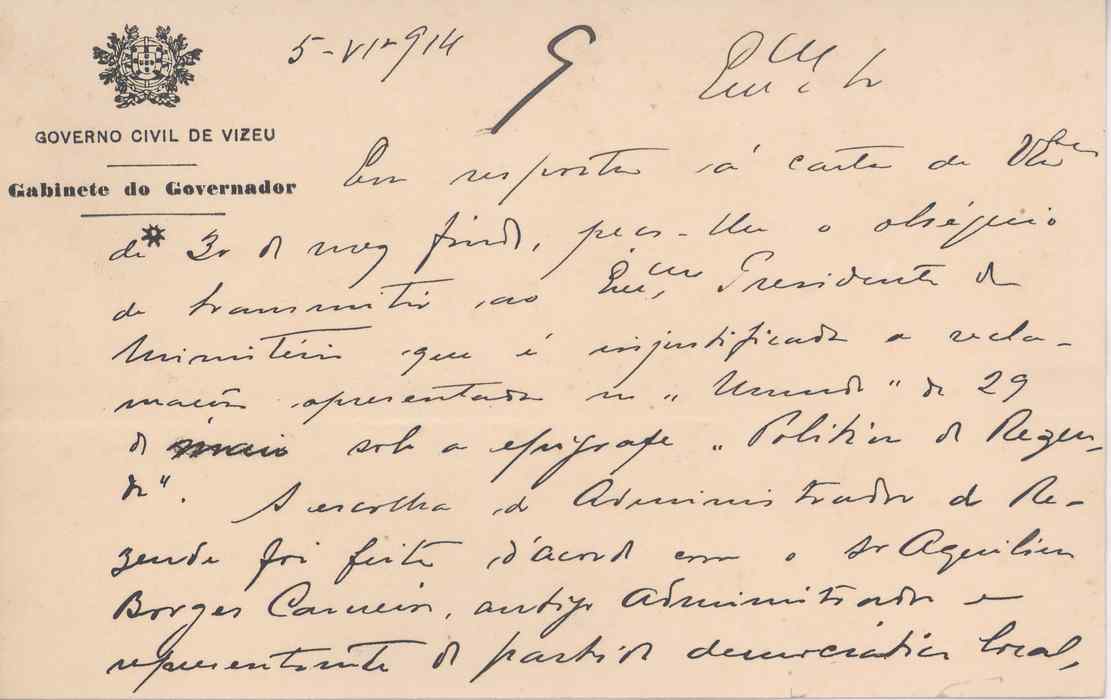 5-VI-914
Exmo Sr
GOVERNO CIVIL DE VIZEU
Gabinete do Governador
Em resposta á carta de V. Exa
de 30 do mez findo, peço-lhe o obséquio
de transmitir ao Exmo Presidente do
Ministério que é injustificada a recla-
mação apresentada no "Mundo" de 29
de maio sob a epigrafe "Politica de Rezen-
de".
A escolha do Administrador de Re-
zende foi feita d'acordo com o sr Aquilino
Borges Carneiro, antigo Administrador e
representante do partido democrático local,